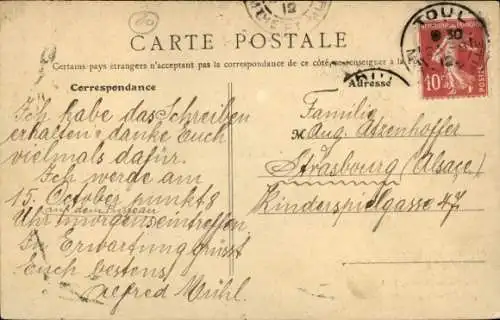 TOUL
8 30
12
10
CARTE POSTALE
Certains pays étrangers n'acceptant pas la correspondance de ce côté, se renseigner à la
Correspondance
Adresse
Ich habe das Schreiben
erhalten & danke Euch
vielmals dafür.
Ich werde am
15. October punkt 8
auf dem Bureau
Uhr morgens eintreffen
In Erwartung grüsst
Euch bestens
Alfred Mühl.
Familie
M Aug. Atzenhoffer
Strasbourg (Alsace)
Kinderspielgasse 47